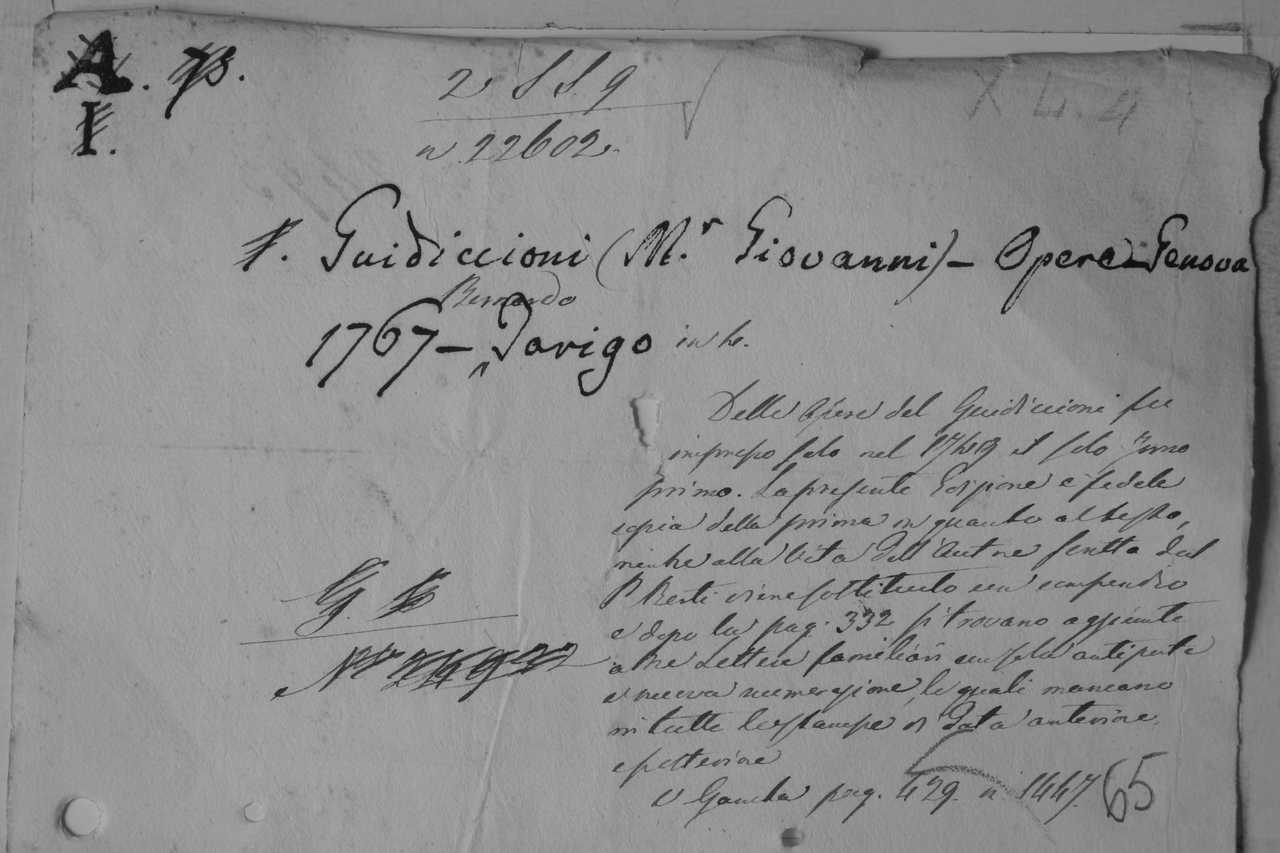 A. 73.
I.
2 S S. 9
n 22602.
X L. 4
f. Guidiccioni (M.r Giovanni) - Opere - Genova
Bernardo
1767 - Tarigo in 4o.
Delle Opere del Guidiccioni fu
impresso solo nel 1749 il solo Tomo
primo. La presente Edizione è fedele
copia della prima in quanto al testo,
mentre alla Vita dell'Autore scritta dal
P. Berti viene sostituito un compendio
e dopo la pag. 332 si trovano aggiunte
altre Lettere famigliari
e nuova numerazione, le quali mancano
in tutte le stampe di data anteriore,
e posteriore
V Gamba pag. 429. n. 1447.
65
G. B
No 24922